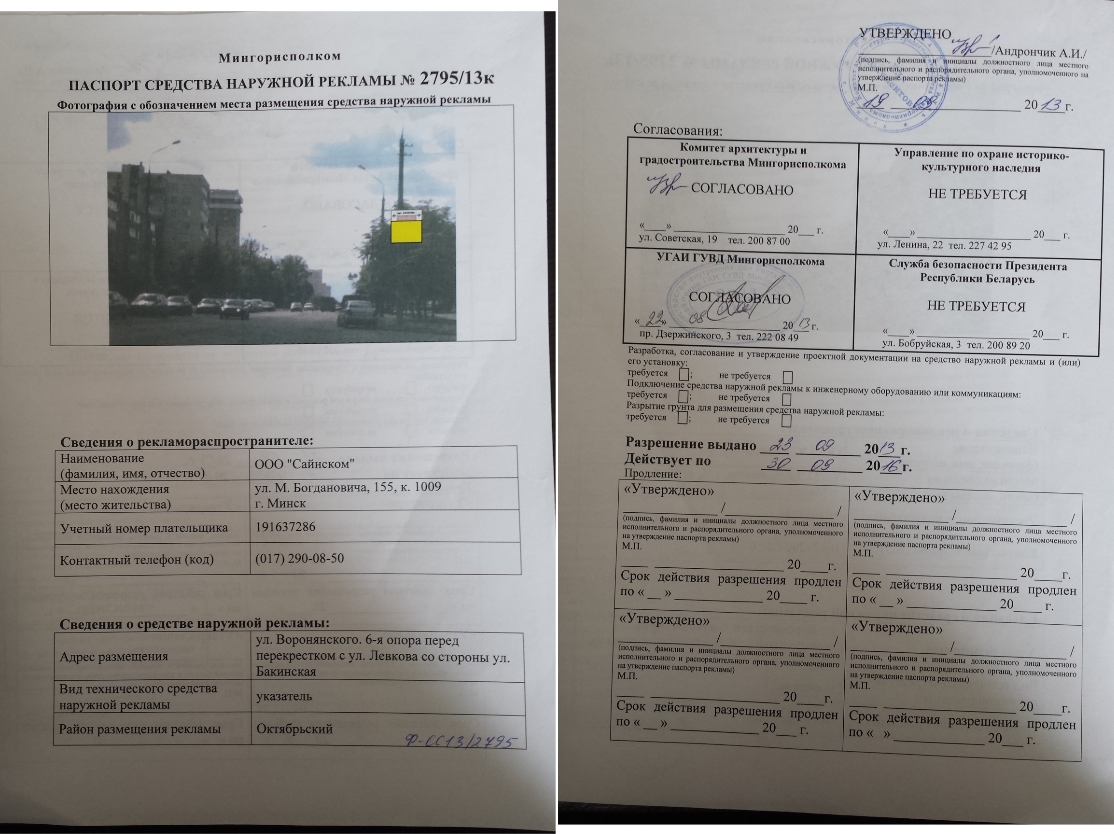 Мингорисполком
ПАСПОРТ СРЕДСТВА НАРУЖНОЙ РЕКЛАМЫ № 2795/13к
Фотография с обозначением места размещения средства наружной рекламы
Сведения о рекламораспространителе:
Наименование
(фамилия, имя, отчество)
ООО "Сайнском"
Место нахождения
(место жительства)
ул. М. Богдановича, 155, к. 1009
г. Минск
Учетный номер плательщика
191637286
Контактный телефон (код)
(017) 290-08-50
Сведения о средстве наружной рекламы:
Адрес размещения
ул. Воронянского. 6-я опора перед
перекрестком с ул. Левкова со стороны ул.
Бакинская
Вид технического средства
наружной рекламы
указатель
Район размещения рекламы
Октябрьский
Ф-СС13/2795
УТВЕРЖДЕНО
/Андрончик А.И./
(подпись, фамилия и инициалы должностного лица местного
исполнительного и распорядительного органа, уполномоченного на
утверждение паспорта рекламы)
М.П.
19 09 2013 г.
Согласования:
Комитет архитектуры и
градостроительства Мингорисполкома
СОГЛАСОВАНО
«____» ____________________ 20___ г.
ул. Советская, 19 тел. 200 87 00
Управление по охране историко-
культурного наследия
НЕ ТРЕБУЕТСЯ
«____» ____________________ 20___ г.
ул. Ленина, 22 тел. 227 42 95
УГАИ ГУВД Мингорисполкома
СОГЛАСОВАНО
«22» 08 2013 г.
пр. Дзержинского, 3 тел. 222 08 49
Служба безопасности Президента
Республики Беларусь
НЕ ТРЕБУЕТСЯ
«____» ____________________ 20___ г.
ул. Бобруйская, 3 тел. 200 89 20
Разработка, согласование и утверждение проектной документации на средство наружной рекламы и (или)
его установку:
требуется ; не требуется
Подключение средства наружной рекламы к инженерному оборудованию или коммуникациям:
требуется ; не требуется
Разрытие грунта для размещения средства наружной рекламы:
требуется ; не требуется
Разрешение выдано 23 09 2013 г.
Действует по 30 09 2016 г.
Продление:
«Утверждено»
____________________/____________________/
(подпись, фамилия и инициалы должностного лица местного
исполнительного и распорядительного органа, уполномоченного
на утверждение паспорта рекламы)
М.П.
____ ____________________ 20____г.
Срок действия разрешения продлен
по « __ » ______________ 20____ г.
«Утверждено»
____________________/____________________/
(подпись, фамилия и инициалы должностного лица местного
исполнительного и распорядительного органа, уполномоченного
на утверждение паспорта рекламы)
М.П.
____ ____________________ 20____г.
Срок действия разрешения продлен
по « __ » ______________ 20____ г.
«Утверждено»
____________________/____________________/
(подпись, фамилия и инициалы должностного лица местного
исполнительного и распорядительного органа, уполномоченного
на утверждение паспорта рекламы)
М.П.
____ ____________________ 20____г.
Срок действия разрешения продлен
по « __ » ______________ 20___ г.
«Утверждено»
____________________/____________________/
(подпись, фамилия и инициалы должностного лица местного
исполнительного и распорядительного органа, уполномоченного
на утверждение паспорта рекламы)
М.П.
____ ____________________ 20____г.
Срок действия разрешения продлен
по « » ______________ 20___ г.